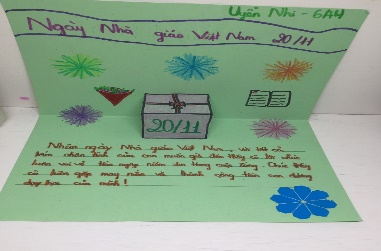 Uyển Nhi - 6A4
Ngày Nhà giáo Việt Nam 20/11
20/11
Nhân ngày Nhà giáo Việt Nam, với tất cả
tấm chân tình của con muốn gửi đến thầy cô lời chúc
luôn vui vẻ tràn ngập niềm vui trong cuộc sống. Chúc thầy
cô luôn gặp may mắn và thành công trên con đường
dạy học của mình!